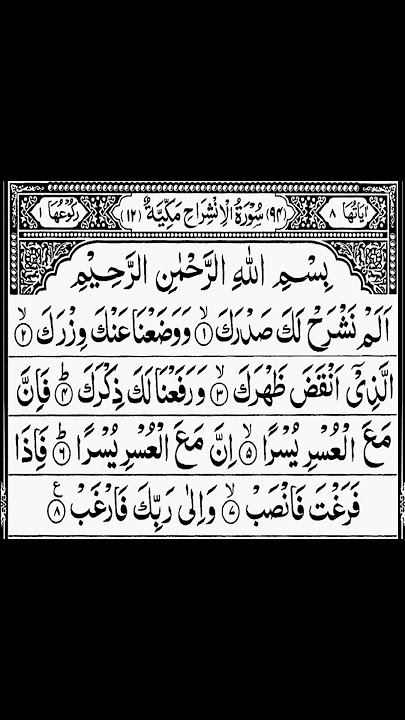 اٰيَاتُهَا ٨ (٩٤) سُوْرَةُ الْاِنْشِرَاحِ مَكِّيَّةٌ (١٢) رُكُوْعُهَا ١
بِسْمِ اللهِ الرَّحْمٰنِ الرَّحِيْمِ
اَلَمْ نَشْرَحْ لَكَ صَدْرَكَ ۙ﴿١﴾ وَوَضَعْنَا عَنْكَ وِزْرَكَ ۙ﴿٢﴾
الَّذِيْۤ اَنْقَضَ ظَهْرَكَ ۙ﴿٣﴾ وَرَفَعْنَا لَكَ ذِكْرَكَ ؕ﴿٤﴾ فَاِنَّ
مَعَ الْعُسْرِ يُسْرًا ۙ﴿٥﴾ اِنَّ مَعَ الْعُسْرِ يُسْرًا ؕ﴿٦﴾ فَاِذَا
فَرَغْتَ فَانْصَبْ ۙ﴿٧﴾ وَاِلٰى رَبِّكَ فَارْغَبْ ﴿٨﴾ ع